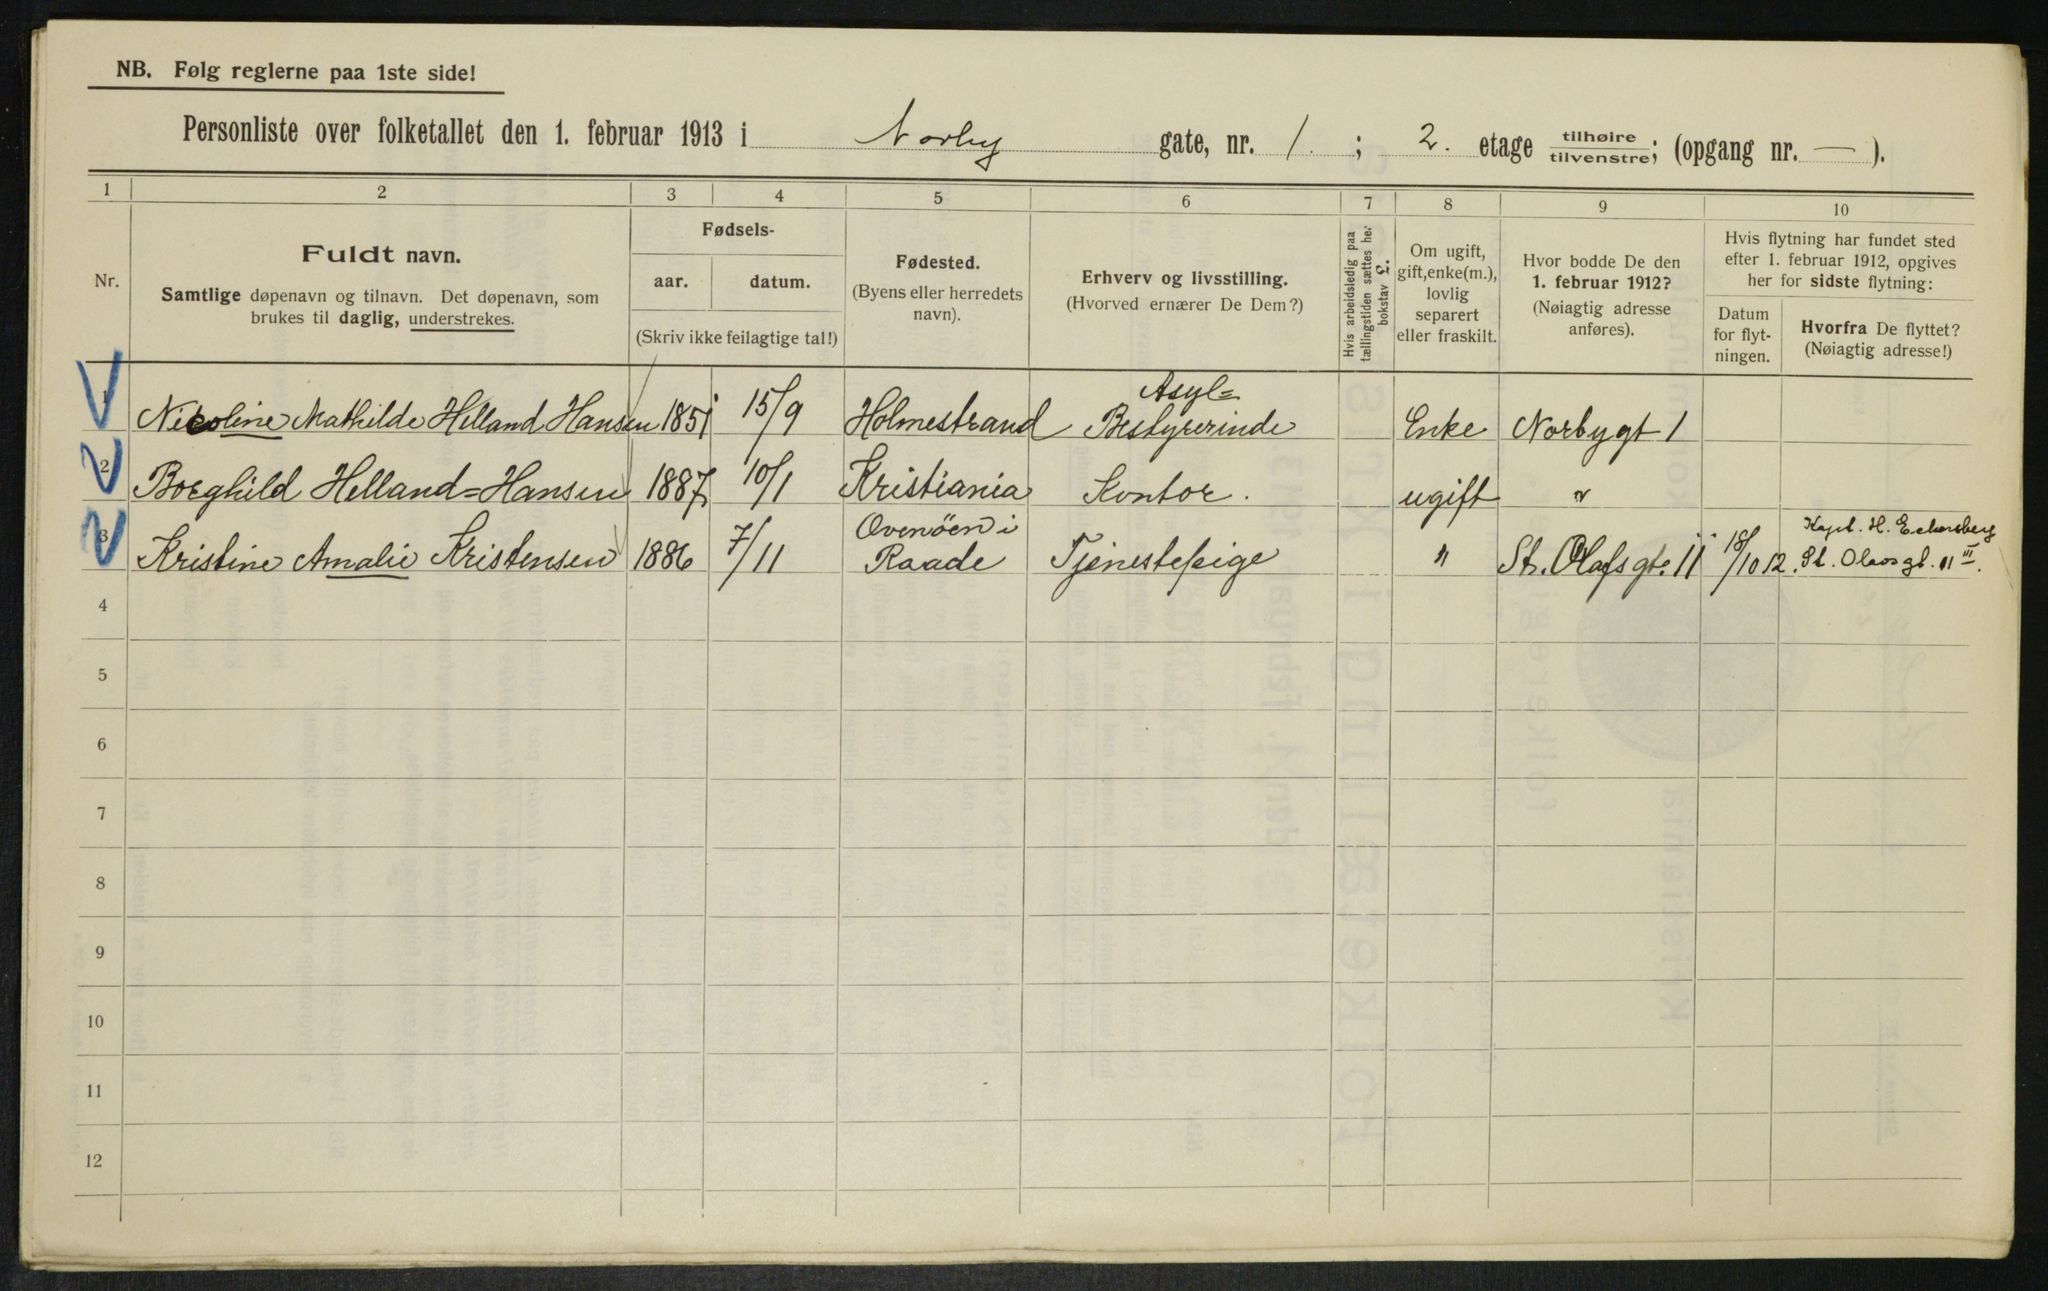 NB. Følg reglerne paa 1ste side!
Personliste over folketallet den 1. februar 1913 i Norby gate, nr. 1. ; 2. etage tilhøire tilvenstre; (opgang nr. — ).
1 2 3 4 5 6 7 8 9 10
Nr.
Fuldt navn.
Samtlige døpenavn og tilnavn. Det døpenavn, som
brukes til daglig, understrekes.
Fødsels-
aar. datum.
(Skriv ikke feilagtige tal!)
Fødested.
(Byens eller herredets
navn).
Erhverv og livsstilling.
(Hvorved ernærer De Dem?)
Hvis arbeidsledig paa
tællingstiden sættes her
bokstav L.
Om ugift,
gift, enke(m.),
lovlig
separert
eller fraskilt.
Hvor bodde De den
1. februar 1912?
(Nøiagtig adresse
anføres).
Hvis flytning har fundet sted
efter 1. februar 1912, opgives
her for sidste flytning:
Datum
for flyt-
ningen.
Hvorfra De flyttet?
(Nøiagtig adresse!)
1 Nicoline Mathilde Helland Hansen 1851 15/9 Holmestrand Asyl=
Bestyrerinde Enke Norbygt 1
2 Borghild Helland=Hansen 1887 10/1 Kristiania Kontor. ugift "
3 Kristine Amalie Kristensen 1886 7/11 Ovenöen i
Raade Tjenestepige " St. Olafsgt. 11 18/10 12. Kapt. H. Eckersberg
St. Olavsgt. 11 III.
4
5
6
7
8
9
10
11
12